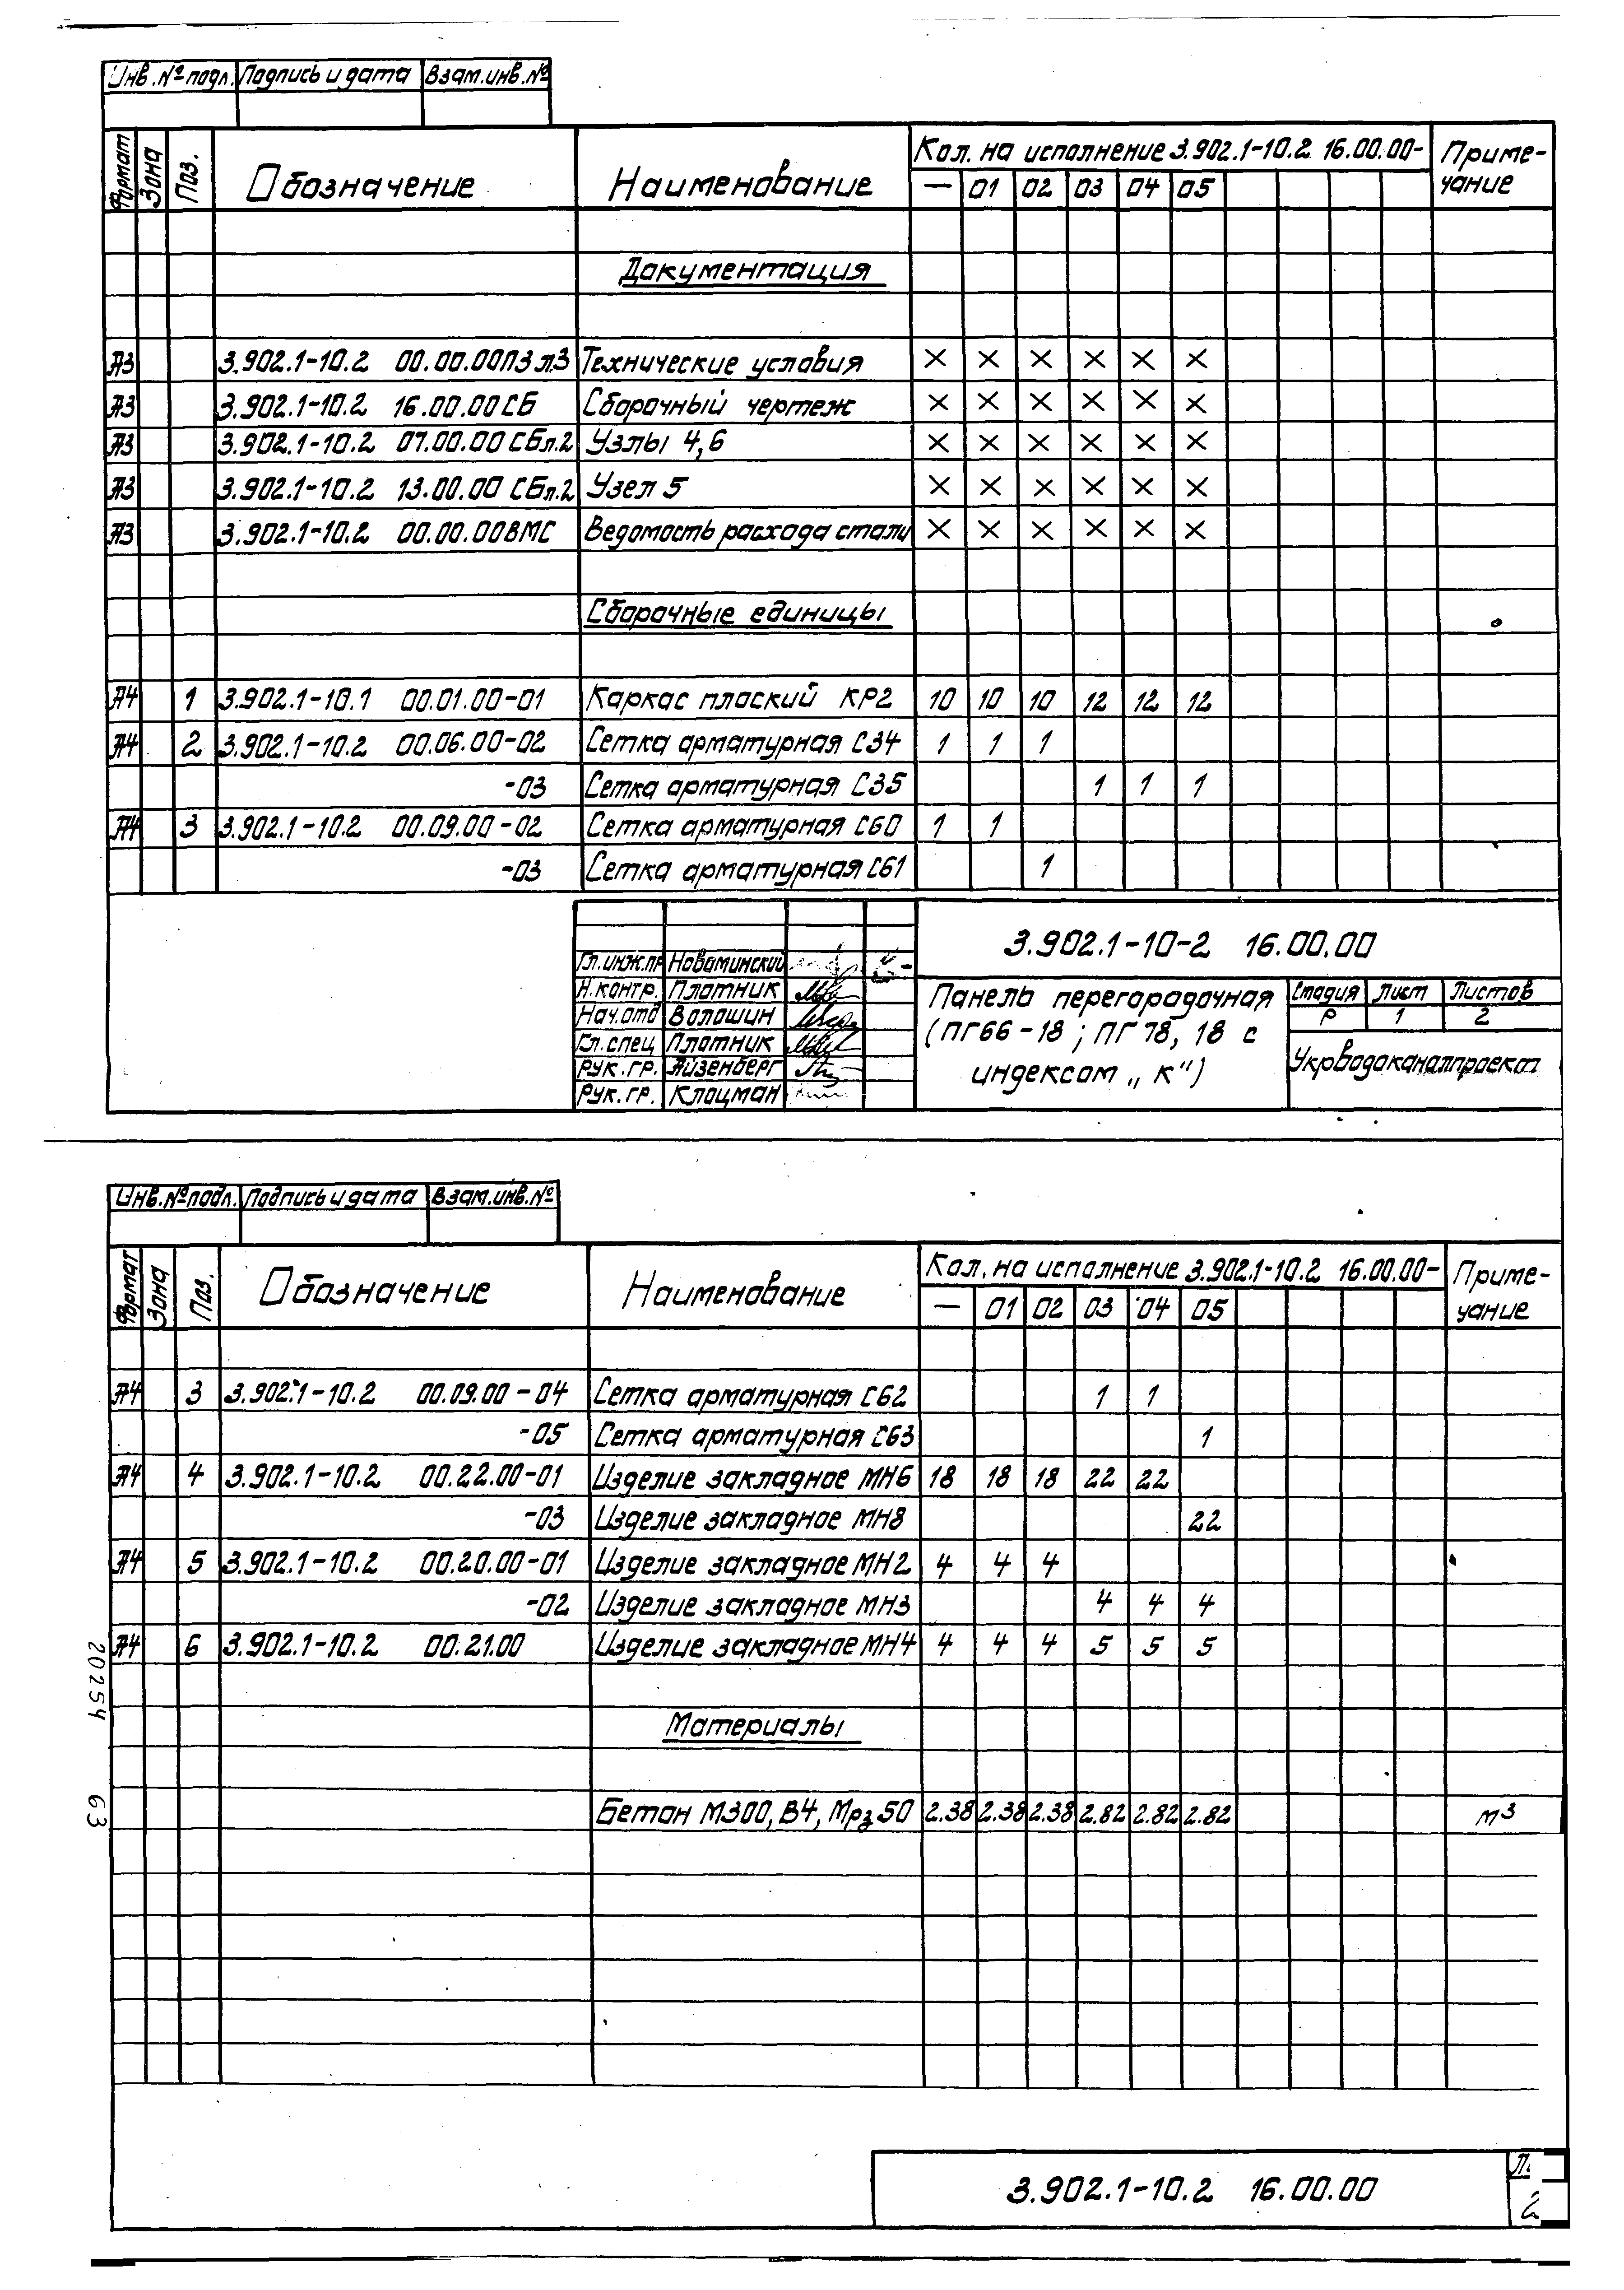 Инв.№ подл. Подпись и дата Взам.инв.№
Формат Зона Поз. Обозначение Наименование Кол. на исполнение 3.902.1-10.2 16.00.00- Приме-
— 01 02 03 04 05 чание
Документация
А3 3.902.1-10.2 00.00.00ПЗ л.3 Технические условия × × × × × ×
А3 3.902.1-10.2 16.00.00СБ Сборочный чертеж × × × × × ×
А3 3.902.1-10.2 07.00.00 СБл.2 Узлы 4,6 × × × × × ×
А3 3.902.1-10.2 13.00.00 СБл.2 Узел 5 × × × × × ×
А3 3.902.1-10.2 00.00.00ВМС Ведомость расхода стали × × × × × ×
Сборочные единицы
А4 1 3.902.1-10.1 00.01.00-01 Каркас плоский КР2 10 10 10 12 12 12
А4 2 3.902.1-10.2 00.06.00-02 Сетка арматурная С34 1 1 1
-03 Сетка арматурная С35 1 1 1
А4 3 3.902.1-10.2 00.09.00-02 Сетка арматурная С60 1 1
-03 Сетка арматурная С61 1
3.902.1-10-2 16.00.00
Гл.инж.пр Новоминский
Н.контр. Плотник
Нач.отд Волошин
Гл.спец Плотник
Рук.гр. Айзенберг
Рук.гр. Клоцман
Панель перегородочная
(ПГ66-18; ПГ78, 18 с
индексом „к")
Стадия Лист Листов
Р 1 2
Укрводоканалпроект
Инв.№подл. Подпись и дата Взам.инв.№
Формат Зона Поз. Обозначение Наименование Кол. на исполнение 3.902.1-10.2 16.00.00- Приме-
— 01 02 03 04 05 чание
А4 3 3.902.1-10.2 00.09.00-04 Сетка арматурная С62 1 1
-05 Сетка арматурная С63 1
А4 4 3.902.1-10.2 00.22.00-01 Изделие закладное МН6 18 18 18 22 22
-03 Изделие закладное МН8 22
А4 5 3.902.1-10.2 00.20.00-01 Изделие закладное МН2 4 4 4
-02 Изделие закладное МН3 4 4 4
А4 6 3.902.1-10.2 00.21.00 Изделие закладное МН4 4 4 4 5 5 5
Материалы
Бетон М300, В4, Мрз 50 2.38 2.38 2.38 2.82 2.82 2.82 м³
20254 63
3.902.1-10.2 16.00.00
2